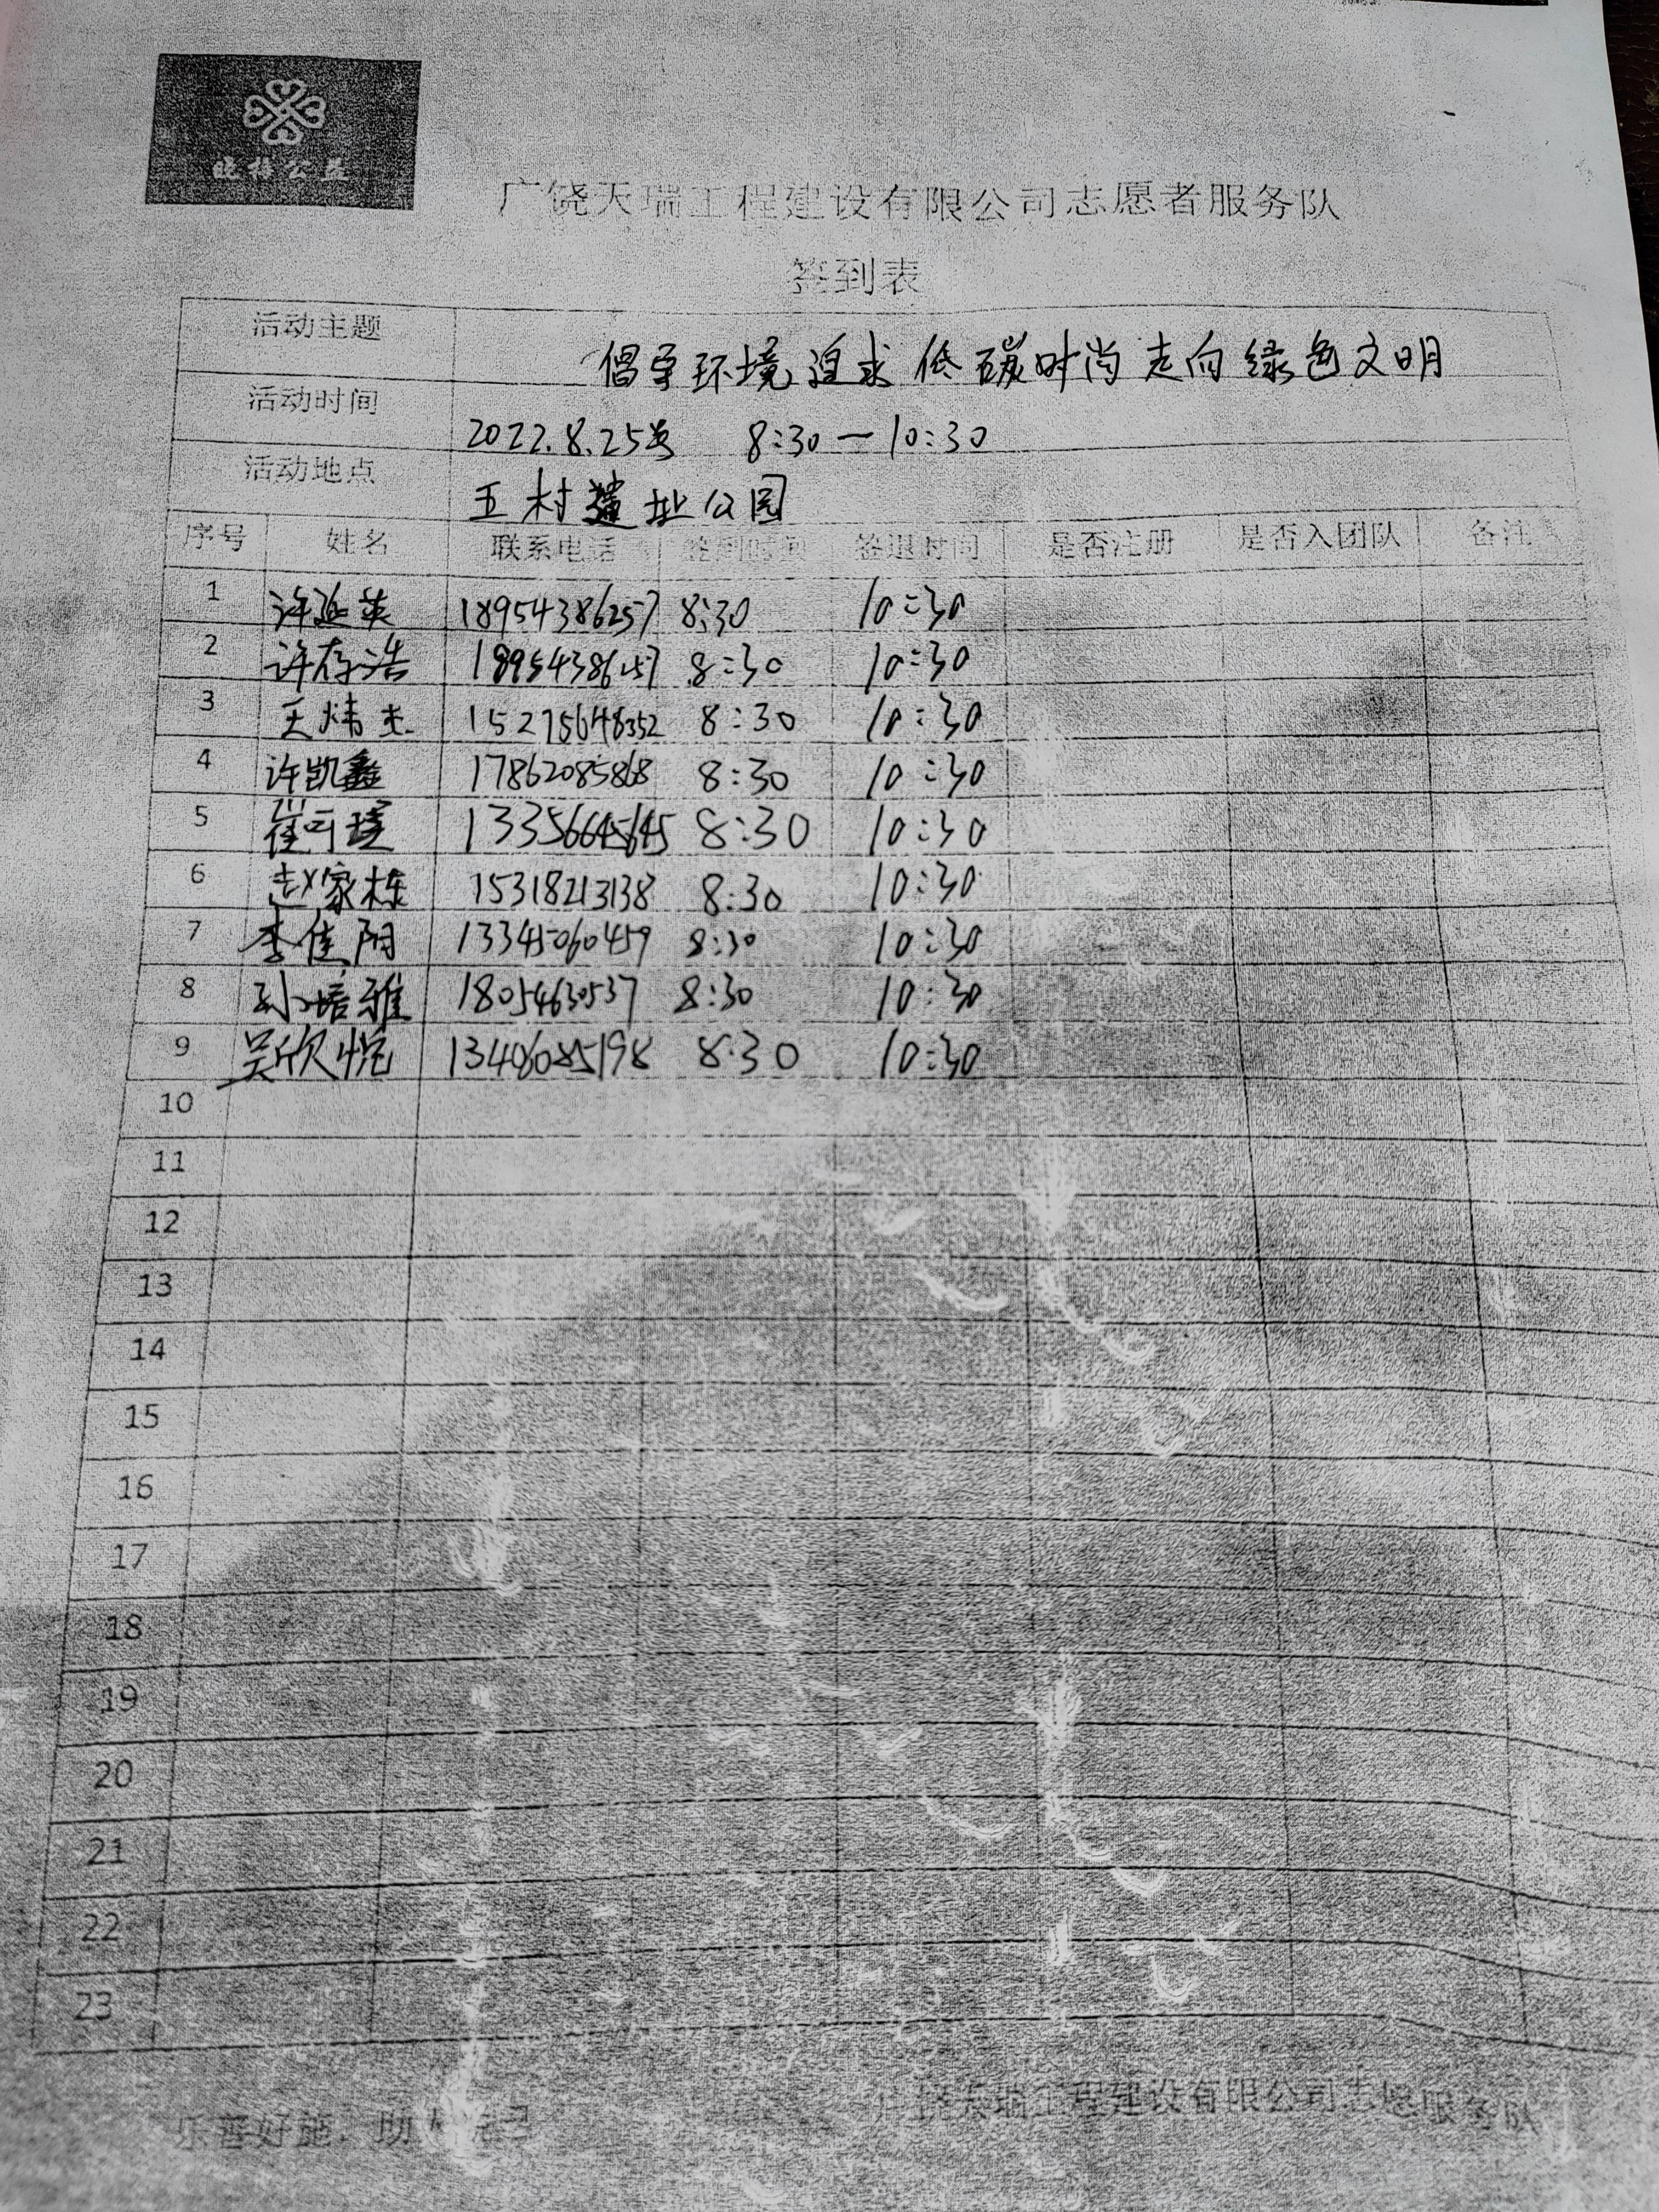 晓梅公益
广饶天瑞工程建设有限公司志愿者服务队
签到表
活动主题 倡导环境追求低碳时尚走向绿色文明
活动时间 2022.8.25号 8:30—10:30
活动地点 五村遗址公园
序号 姓名 联系电话 签到时间 签退时间 是否注册 是否入团队 备注
1 许延英 18954386257 8:30 10:30
2 许存浩 18954386257 8:30 10:30
3 王炜杰 15275648352 8:30 10:30
4 许凯鑫 17862085868 8:30 10:30
5 崔可瑾 13356645645 8:30 10:30
6 赵家栋 15318213138 8:30 10:30
7 李佳阴 13345060459 8:30 10:30
8 孙培雅 18054630537 8:30 10:30
9 吴欣悦 13406085198 8:30 10:30
10
11
12
13
14
15
16
17
18
19
20
21
22
23
乐善好施，助人 广饶天瑞工程建设有限公司志愿服务队